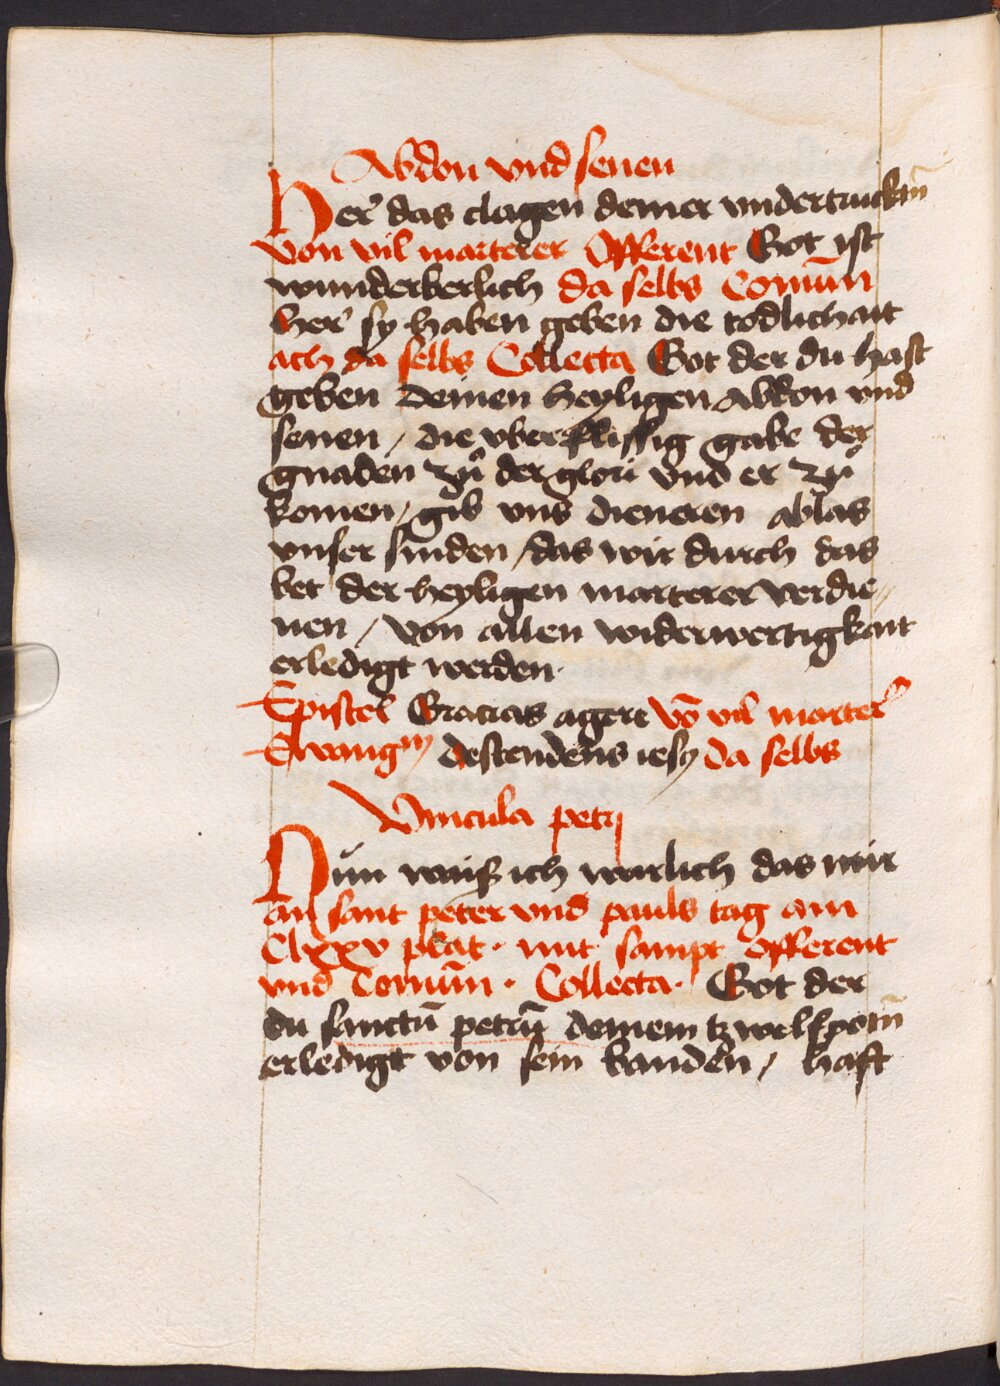 Abdon vnd senen
Her das clagen deiner vndertrucktn̄
von vil marterer Offerent Got ist
wunderberlich da selbs Comūn
her sy haben geben die todlichait
ach da selbs Collecta Got der du hast
geben deinen heyligen Abdon vnd
senen / die vberflissig gabe der
gnaden zů der glori vnd er zů
komen / gib vns dieneren ablas
vnser sinden / das wir durch das
bet der heyligen marterer verdie⸗
nen / von allen widerwertigkait
erledigt werden.
Epistel Gracias agere võ vil marter
Ewang descendens iesq da selbs
Vincula petrj
Nun waiß ich warlich das mir
an sant peter vnd pauls tag am
Clxxv plat. mit sampt offerent
vnd Comūn. Collecta. Got der
du sanctū petrū deinem tzwelfpotn̄
erledigt von sein banden / hast